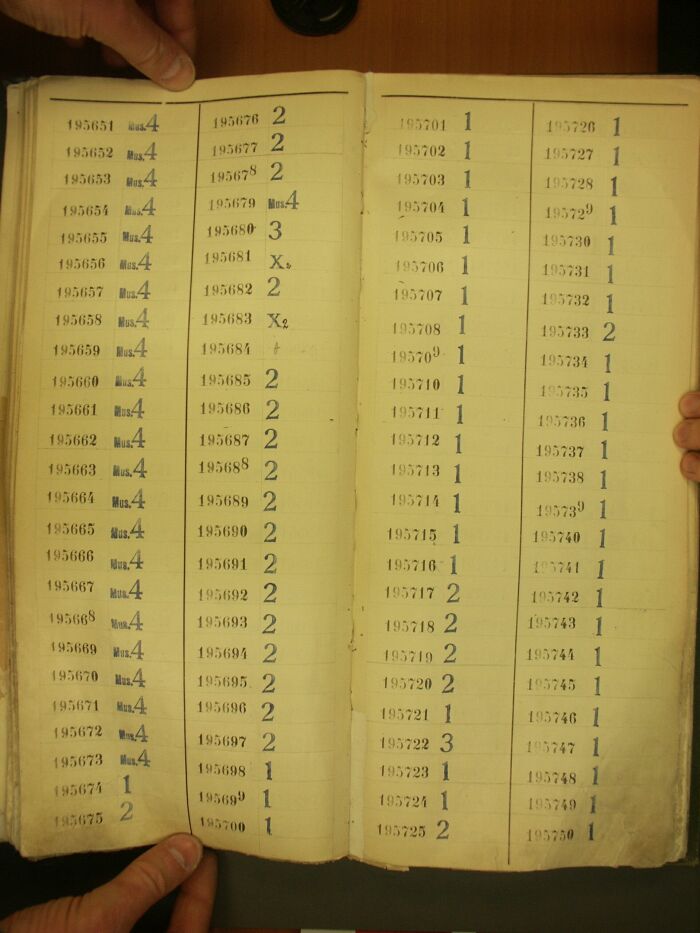 195651 Mus.4
195652 Mus.4
195653 Mus.4
195654 Mus.4
195655 Mus.4
195656 Mus.4
195657 Mus.4
195658 Mus.4
195659 Mus.4
195660 Mus.4
195661 Mus.4
195662 Mus.4
195663 Mus.4
195664 Mus.4
195665 Mus.4
195666 Mus.4
195667 Mus.4
195668 Mus.4
195669 Mus.4
195670 Mus.4
195671 Mus.4
195672 Mus.4
195673 Mus.4
195674 1
195675 2
195676 2
195677 2
195678 2
195679 Mus.4
195680 3
195681
195682 2
195683 X2
195684
195685 2
195686 2
195687 2
195688 2
195689 2
195690 2
195691 2
195692 2
195693 2
195694 2
195695 2
195696 2
195697 2
195698 1
195699 1
195700 1
195701 1
195702 1
195703 1
195704 1
195705 1
195706 1
195707 1
195708 1
195709 1
195710 1
195711 1
195712 1
195713 1
195714 1
195715 1
195716 1
195717 2
195718 2
195719 2
195720 2
195721 1
195722 3
195723 1
195724 1
195725 2
195726 1
195727 1
195728 1
195729 1
195730 1
195731 1
195732 1
195733 2
195734 1
195735 1
195736 1
195737 1
195738 1
195739 1
195740 1
195741 1
195742 1
195743 1
195744 1
195745 1
195746 1
195747 1
195748 1
195749 1
195750 1